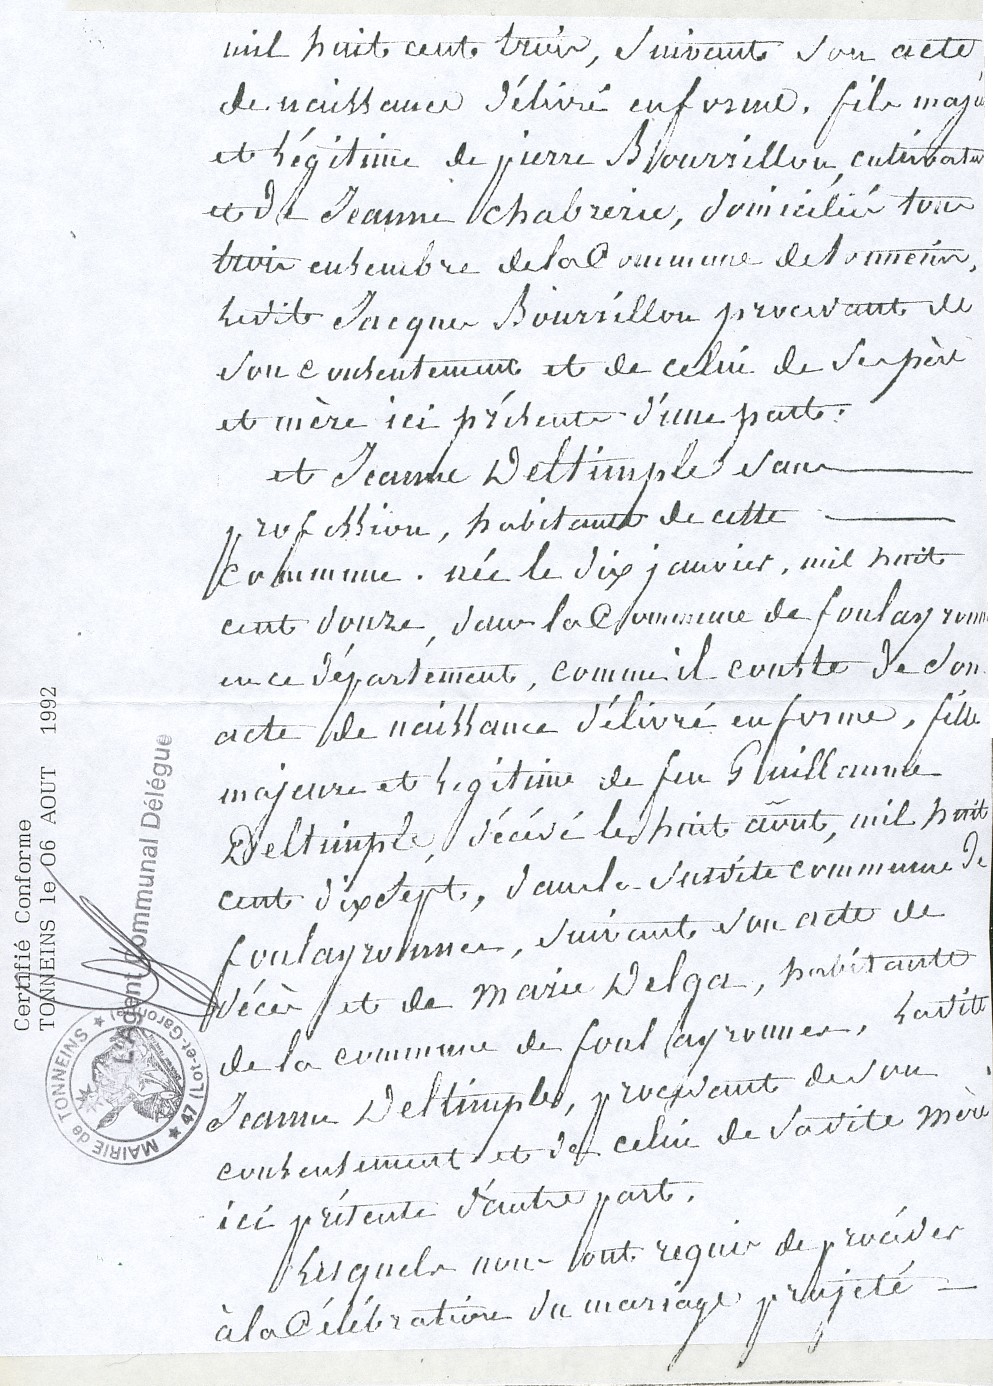 mil huit cent trois, suivant son acte
de naissance délivré en forme. fils maje
et légitime de pierre Boursillon, cultivateur
et de Jeanne Chabrerie, domiciliés tous
trois ensembre de la Commune de tonneins,
ledit Jacques Boursillon procédant de
son consentement et de celui de ses père
et mère ici présents d'une part.
et Jeanne Deltimple sans
profession, habitante de cette
Commune. née le dix janvier, mil huit
cent douze, dans la Commune de foulayronn
en ce département, comme il conste de son
acte de naissance délivré en forme, fille
majeure et légitime de feu Guillaume
Deltimple, décédé le huit août, mil huit
cent dix sept, dans la susdite commune de
foulayronnes, suivant son acte de
décès et de Marie Delga, habitante
de la commune de foulayronnes, ladite
Jeanne Deltimple, procédant de son
consentement et de celui de sadite mère
ici présente d'autre part.
Lesquels nous ont requis de procéder
à la Célébration du mariage projeté
Certifié Conforme
TONNEINS le 06 AOUT 1992
L'Agent Communal Délégué
MAIRIE de TONNEINS ★ 47 (Lot-et-Garonne) ★